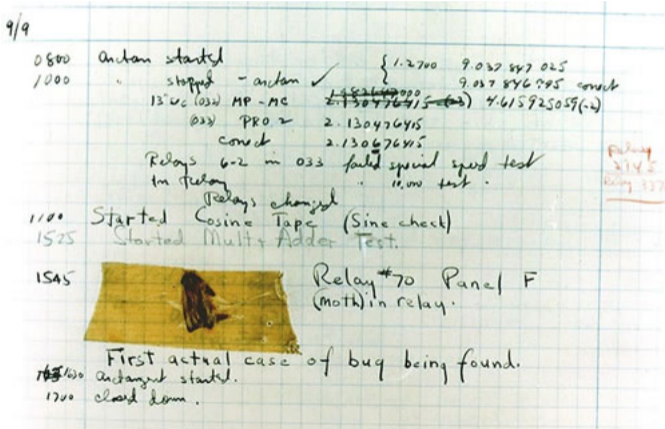 9/9
0800 arctan started { 1.2700 9.037 847 025
1000 " stopped - arctan ✓ { 9.037 846 795 correct
13"uc (032) MP-MC 2.130476415 (-3) 4.615925059(-2)
(033) PRO 2 2.130476415
correct 2.130676415
Relays 6-2 in 033 failed special speed test
in Relay " 10,000 test .
Relays changed
Relay
3370
1100 Started Cosine Tape (Sine check)
1525 Started Mult+Adder Test.
1545 Relay #70 Panel F
(moth) in relay.
First actual case of bug being found.
1630 arctangent started.
1700 closed down.